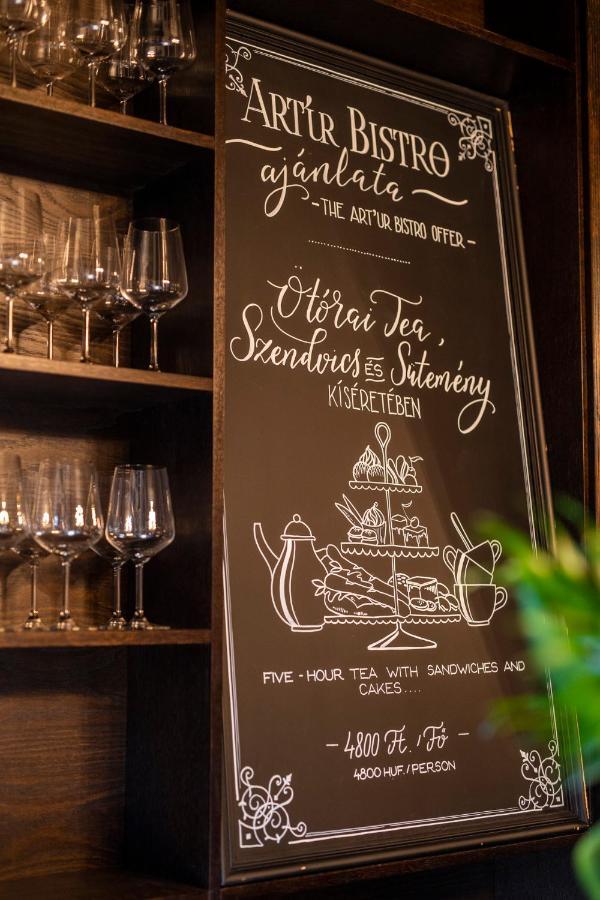 ART'ÚR BISTRO
ajánlata
-THE ART'UR BISTRO OFFER-
Ötórai Tea,
Szendvics ÉS Sütemény
KÍSÉRETÉBEN
FIVE-HOUR TEA WITH SANDWICHES AND
CAKES....
- 4800 Ft. / Fő -
4800 HUF./PERSON